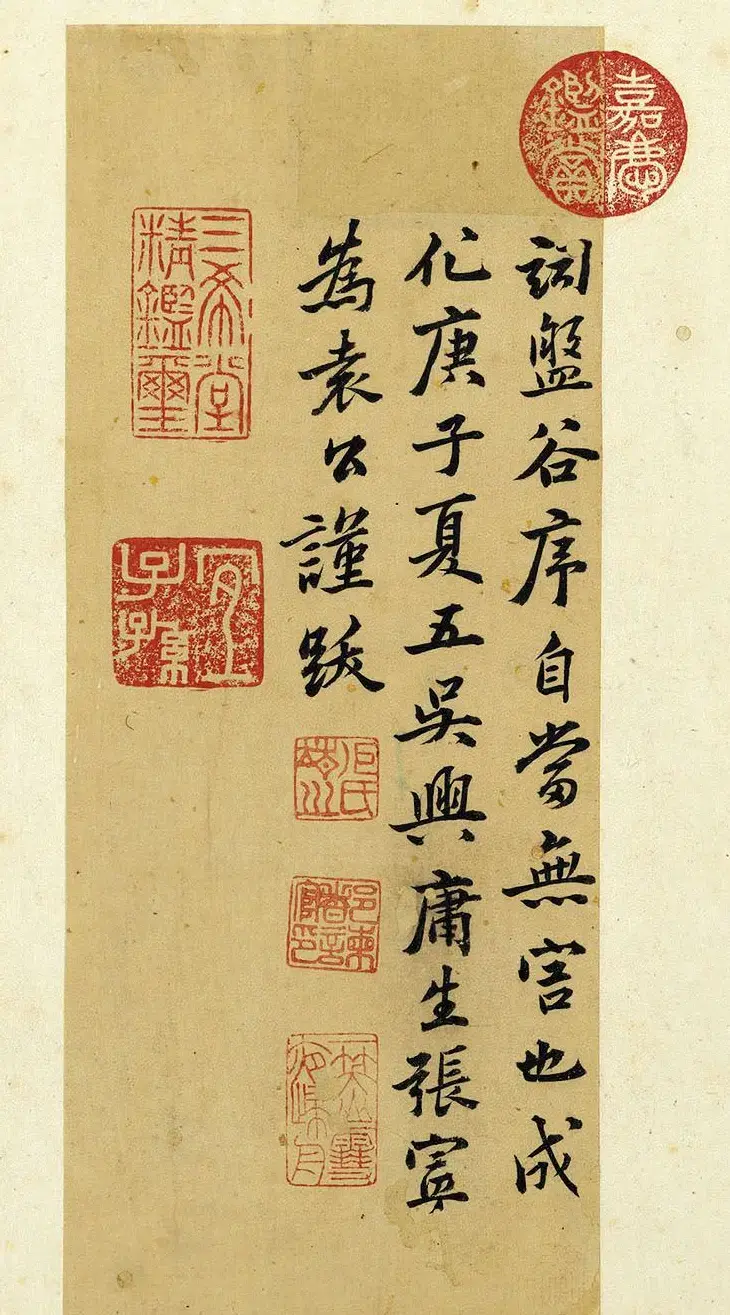 嘉慶鑑賞
詞盤谷序自當無害也成
化庚子夏五吳興庸生張寧
為袁公謹跋
三希堂精鑑璽
宜子孫